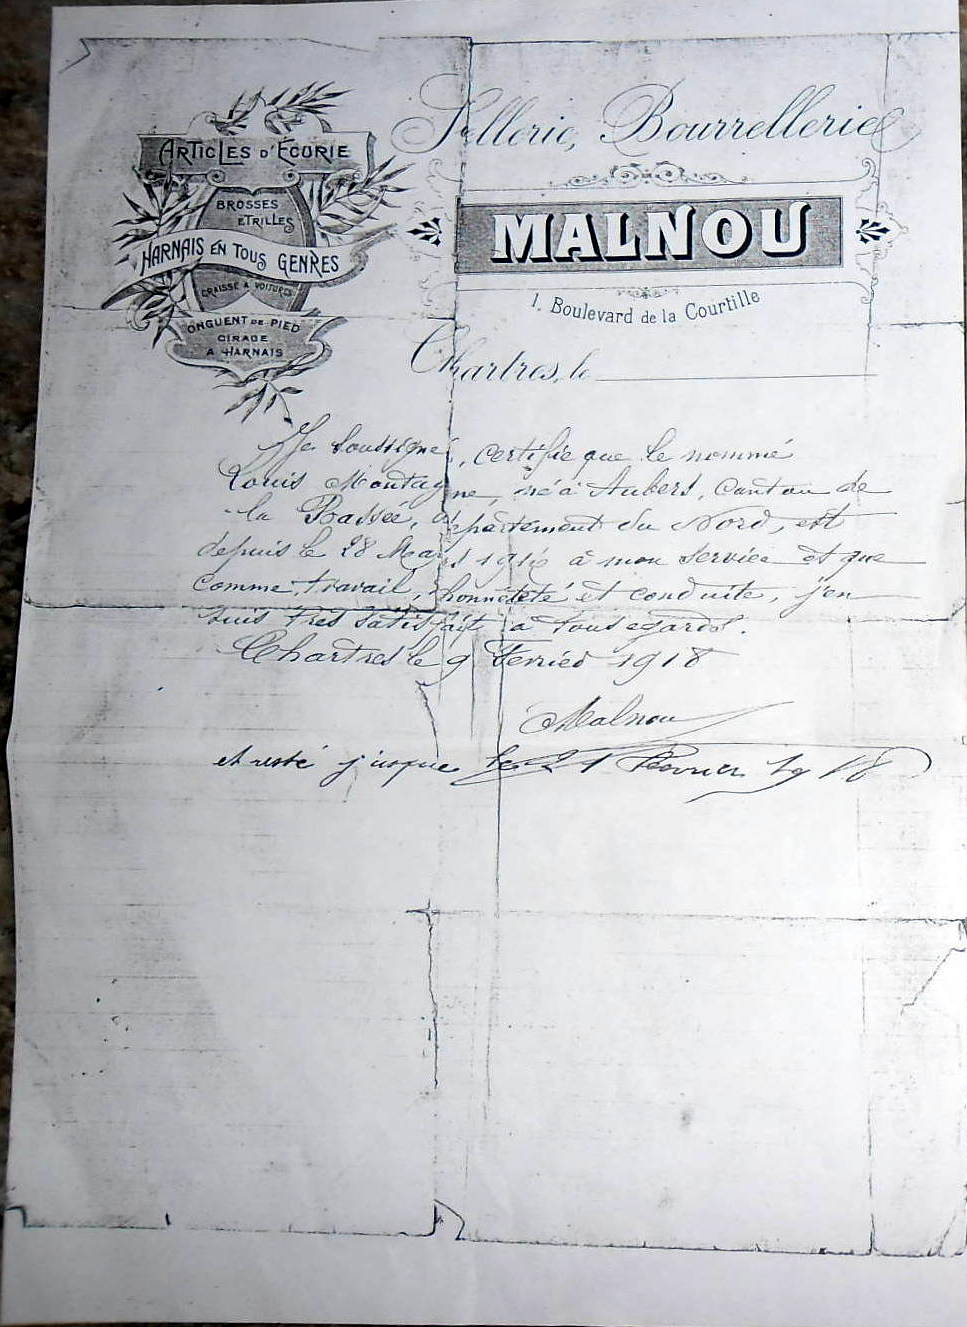 ARTICLES D'ECURIE
BROSSES
ETRILLES
HARNAIS EN TOUS GENRES
GRAISSE A VOITURES
ONGUENT DE PIED
CIRAGE
A HARNAIS
Sellerie, Bourrellerie
MALNOU
1, Boulevard de la Courtille
Chartres, le
Je soussigné, certifie que le nommé
Louis Montagne, né à Aubers, Canton de
la Bassée, département du Nord, est
depuis le 28 Mars 1916 à mon service et que
comme travail, honnêteté et conduite, j'en
suis très satisfait à tous egards.
Chartres le 9 Fevrier 1918
Malnou
et resté jusque le 21 Fevrier 1918